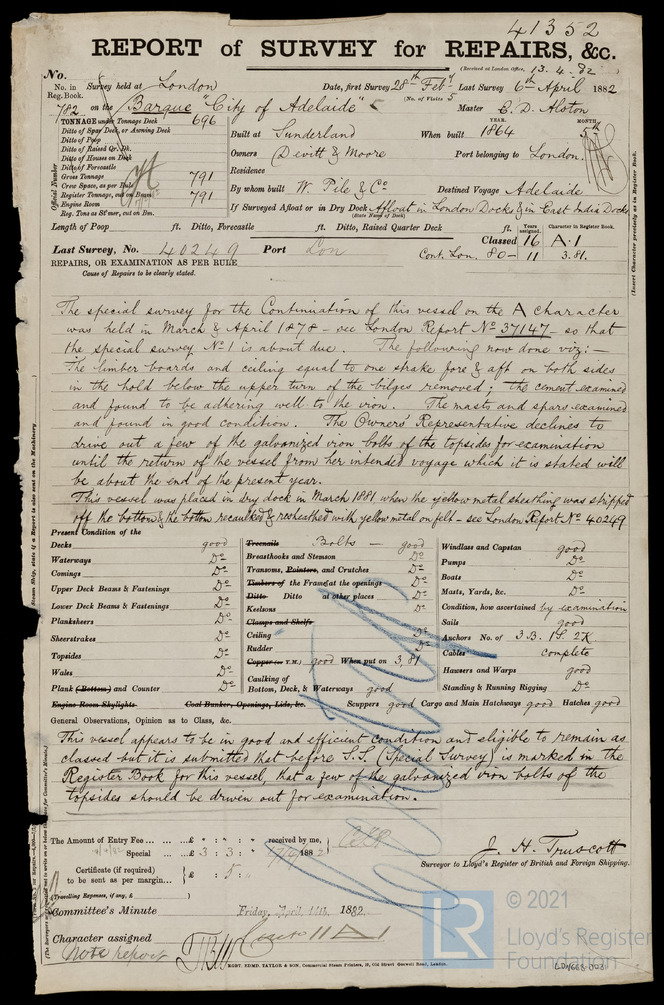 41352
REPORT of SURVEY for REPAIRS, &c.
(Received at London Office, 13.4.82
No.
No. in Reg. Book. Survey held at London Date, first Survey 28th Feby Last Survey 6th April 1882
(No. of Visits 5
782 on the Barque "City of Adelaide" Master E. D. Alston
TONNAGE under Tonnage Deck 696
Ditto of Spar Deck, or Awning Deck
Ditto of Poop
Ditto of Raised Qr. Dk.
Ditto of Houses on Deck
Ditto of Forecastle
Gross Tonnage 791
Crew Space, as per Rule
Register Tonnage, cut on Beam 791
Engine Room
Reg. Tons as St'mer, cut on Bm.
Official Number
YEAR. MONTH.
Built at Sunderland When built 1864 5th
Owners Devitt & Moore Port belonging to London.
Residence
By whom built W. Pile & Co Destined Voyage Adelaide
If Surveyed Afloat or in Dry Dock Afloat in London Docks & in East India Docks
(State Name of Dock)
Length of Poop ft. Ditto, Forecastle ft. Ditto, Raised Quarter Deck ft.
Years assigned. Character in Register Book.
Classed 16 A.1
Last Survey, No. 40249 Port Lon Cont. Lon. 80 - 11 3.81.
REPAIRS, OR EXAMINATION AS PER RULE
Cause of Repairs to be clearly stated.
(Insert Character precisely as in Register Book.
The special survey for the Continuation of this vessel on the A character
was held in March & April 1878 - see London Report No. 37147 - so that
the special survey No. 1 is about due. The following now done viz: -
The limber boards and ceiling equal to one strake fore & aft on both sides
in the hold below the upper turn of the bilges removed; the cement examined
and found to be adhering well to the iron. The masts and spars examined
and found in good condition. The Owners' Representative declines to
drive out a few of the galvanized iron bolts of the topsides for examination
until the return of the vessel from her intended voyage which it is stated will
be about the end of the present year.
This vessel was placed in dry dock in March 1881 when the yellow metal sheathing was stripped
off the bottom & the bottom recaulked & resheathed with yellow metal on felt - see London Report No. 40249
Present Condition of the
Decks good
Waterways Do
Comings Do
Upper Deck Beams & Fastenings Do
Lower Deck Beams & Fastenings Do
Planksheers Do
Sheerstrakes Do
Topsides Do
Wales Do
Plank (Bottom) and Counter Do
Engine Room Skylights
Treenails Bolts - good
Breasthooks and Stemson Do
Transoms, Pointers, and Crutches Do
Timbers of the Frame at the openings Do
Ditto Ditto at other places Do
Keelsons Do
Clamps and Shelfs
Ceiling Do
Rudder Do
Copper (or Y.M.) good When put on 3,81
Caulking of
Bottom, Deck, & Waterways good
Coal Bunker, Openings, Lids, &c.
Windlass and Capstan good
Pumps Do
Boats Do
Masts, Yards, &c. Do
Condition, how ascertained by examination
Sails good
Anchors No. of 3 B. 1 S. 2 K
Cables complete
Hawsers and Warps good
Standing & Running Rigging Do
Scuppers good Cargo and Main Hatchways good Hatches good
General Observations, Opinion as to Class, &c.
This vessel appears to be in good and efficient condition and eligible to remain as
classed but it is submitted that before S.S. (Special Survey) is marked in the
Register Book for this vessel, that a few of the galvanized iron bolts of the
topsides should be driven out for examination.
The Amount of Entry Fee ... ... £ : : received by me,
Special ... £ 3 : 3 : 188
Certificate (if required) to be sent as per margin... £ : 5 :
(Travelling Expenses, if any, £ )
J. H. Truscott
Surveyor to Lloyd's Register of British and Foreign Shipping.
Committee's Minute Friday, April 14th, 1882.
Character assigned
Note report
ROBT. EDMD. TAYLOR & SON, Commercial Steam Printers, 19, Old Street, Goswell Road, London.
LR
© 2021
Lloyd's Register
Foundation